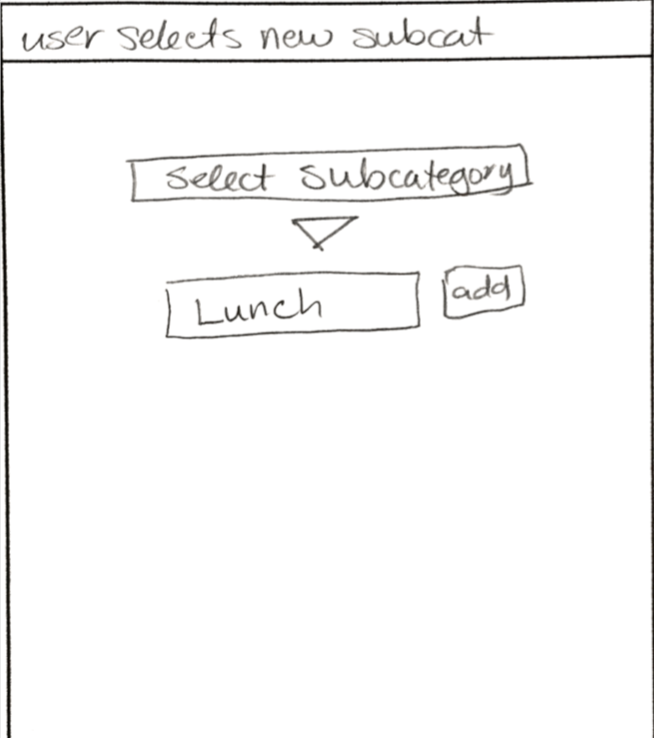 user selects new subcat
Select Subcategory
Lunch
add